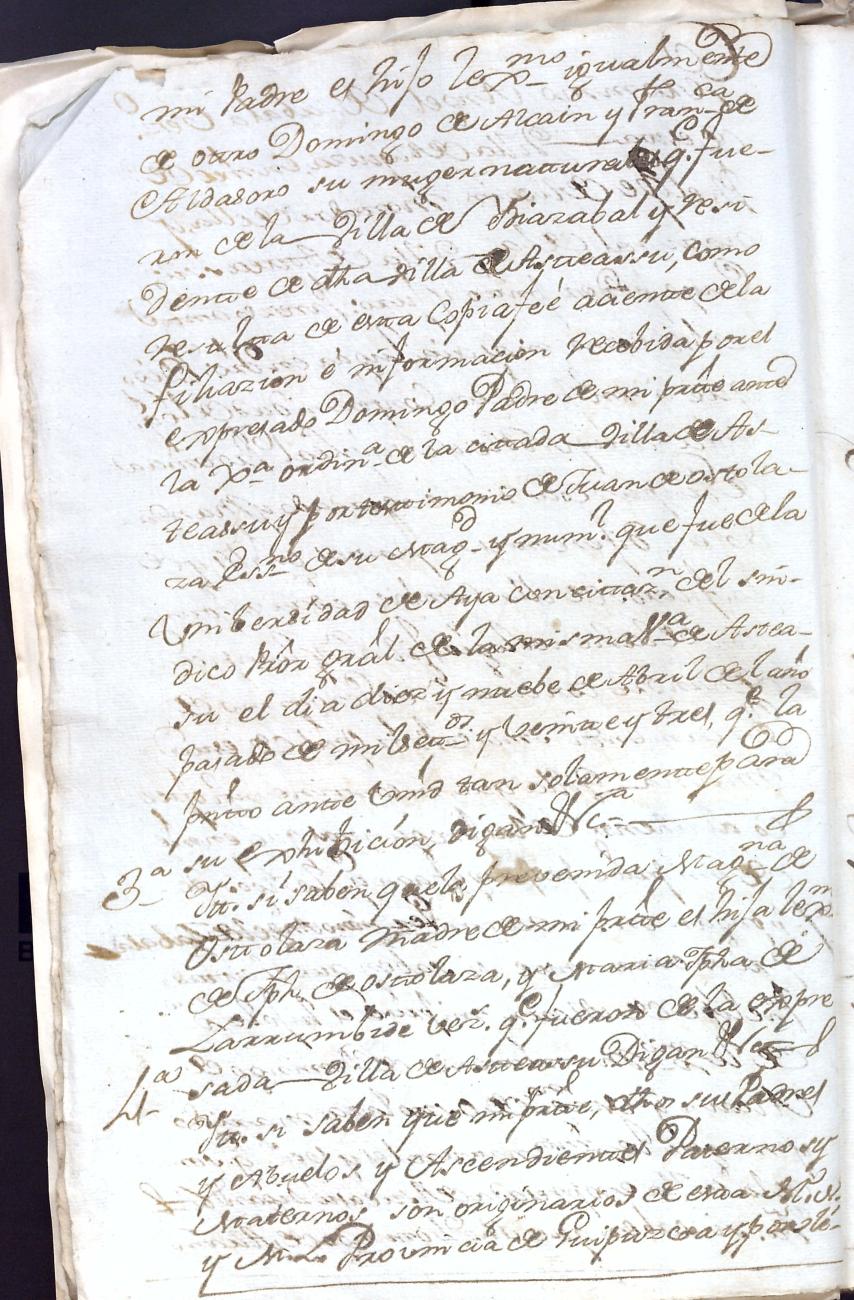 mi Padre es hijo lexmo. igualmente
de otro Domingo de Alcain y Franca. de
Aldasoro su muger natural q.e fue-
ron de la Villa de Ydiazabal y resi
dente de dha Villa de Asteassu, como
resulta de esta Copia feé aciente de la
filiazion é informacion recebida por el
expresado Domingo Padre de mi prãte ante
la Xa. ordina. de la cittada Villa de As-
teassu y por testimonio de Juan de ostola-
za Essno. de su Magd. y numl. que fue de la
Vniversidad de Aya con cittazn. del sin-
dico Prôr grâl. de la misma Va. de Astea-
su el dia diez y nuebe de Abril de el año
pasado de mil settos. y Veinte y tres, q.e la
prêto ante Vmd tan solamente para
su exhibición, digan &Ca.
3a. Ytt. si saben que la prevenida Magna. de
Osttolaza Madre de mi prãte es hija lexma.
de Jph. de ostolaza, y Maria Jpha de
Larrumbide vezs. q.e fueron de la expre
sada Villa de Asteassu Digan &Ca.
4a. Ytt. si saben que mi prãte, dho sus Padres
y Abuelos y Ascendientes Paternos y
Maternos son originarios de esta M. N.
y M. L. Provincia de Guipuzcoa y por le-